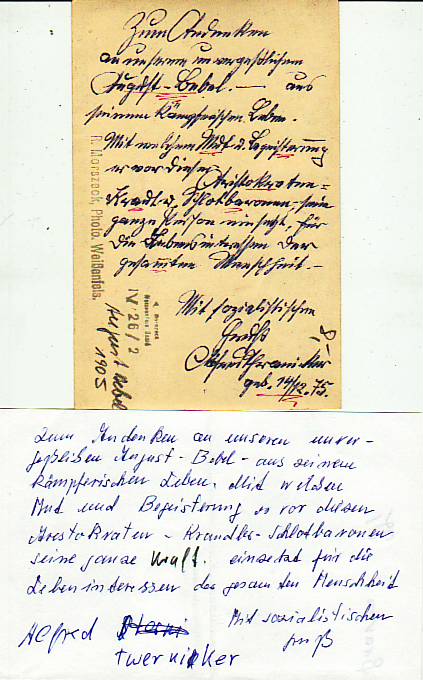 Zum Andenken
an unseren unvergeßlichen
August-Bebel. — aus
seinem kämpferischen Leben.
Mit welchem Mut u. Begeisterung
er vor dieser
Aristokraten=
u. Schlotbaronen - seine
ganze Person einsetzt, für
die Lebensinteressen der
gesamten Menschheit. —
Mit sozialistischem
Gruß
geb. 14/12. 75.
R. Morszeck, Photo. Weißenfels.
IV 26/2
August Bebel
1905
8,-
Zum Andenken an unseren unver-
geßlichen August - Bebel - aus seinem
kämpferischen Leben. Mit welchem
Mut und Begeisterung er vor diesen
Arestokraten - Krandler - Schlotbaronen
seine ganze Kraft. einsetzt für die
Lebeninteressen der gesamten Menschheit
Mit sozialistischen
gruß
Alfred
twernicker